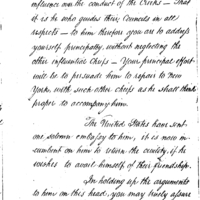 influence over the conduct of the Creeks — That
it is he who guides their Councils in all
respects — to him therefore you are to address
yourself principally, without neglecting the
other influential Chiefs — Your principal effort
will be to persuade him to repair to New
York, with such other Chiefs as he shall think
proper to accompany him.
The United States have sent
one solemn embassy to him, it is now in-
cumbent on him to return the civility, if he
wishes to avail himself of their friendship.
In holding up the arguments
to him on this head, you may truly assure